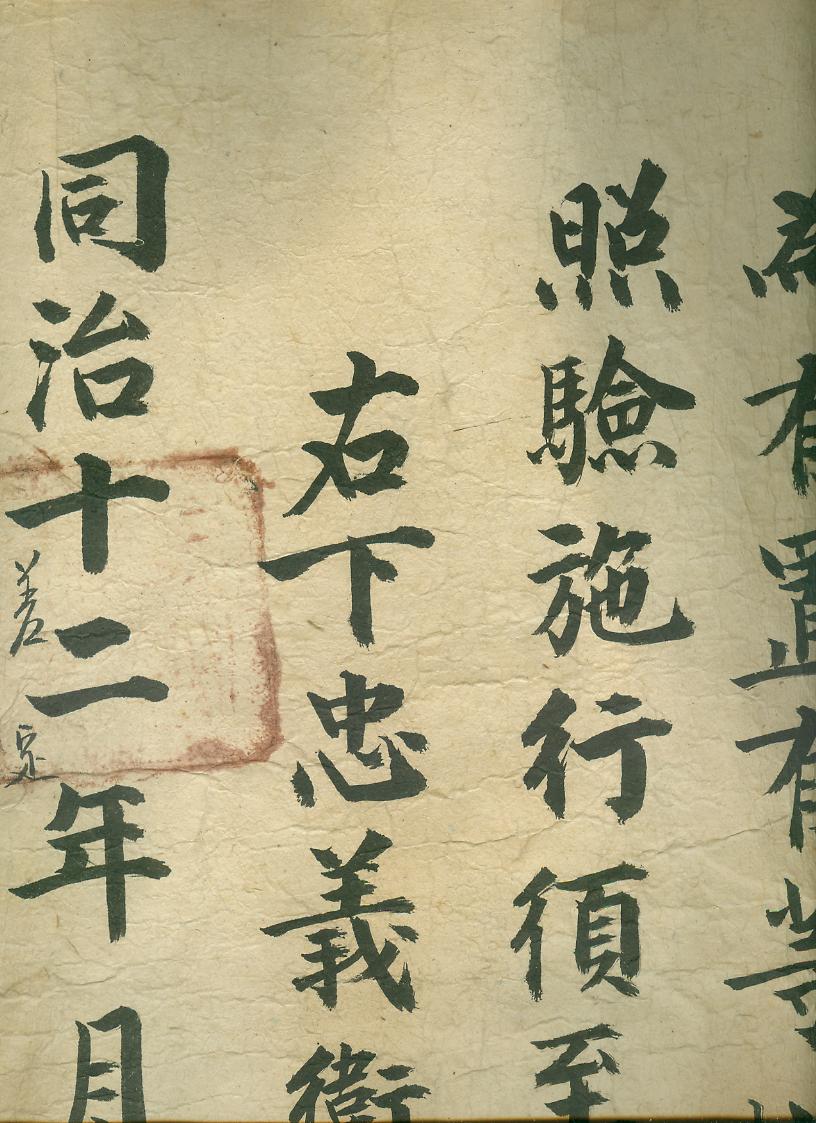 為有有等
照驗施行須至
右下忠義衛
同治十二年 月
差 定